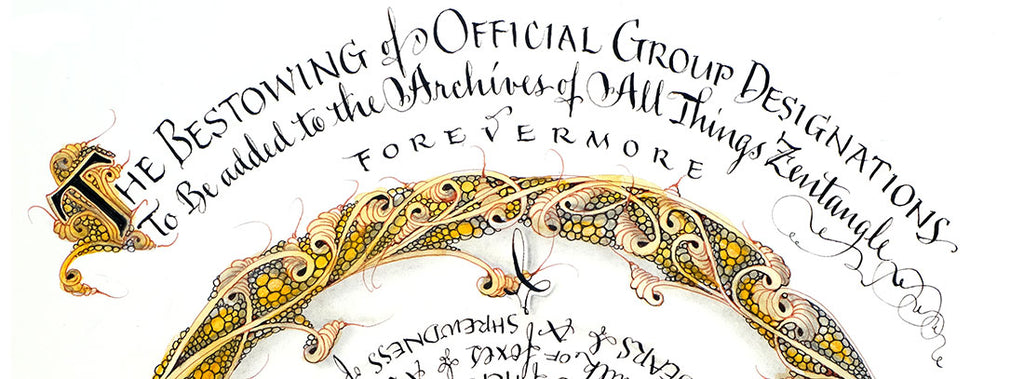 THE BESTOWING of OFFICIAL GROUP DESIGNATIONS
To Be added to the Archives of All Things Zentangle
FOREVERMORE
A
SHREWDNESS
OF foxes &
EARS &